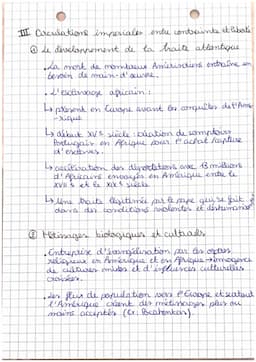 III Circulations impériales entre contrainte et liberté
① Le développement de la traite atlantique
• La mort de nombreux Amérindiens entraîne un
besoin de main-d'œuvre.
• L'esclavage africain :
↳ présent en Europe avant les conquêtes de l'Amé-
-rique
↳ début XVe siècle : création de comptoirs
Portugais en Afrique pour l'achat/capture
d'esclaves.
↳ accélération des déportations avec 13 millions
d'Africains envoyés en Amérique entre le
XVIIe et le XIXe siècle
↳ Une traite légitimée par le pape qui se fait
dans des conditions violentes et déshumanis
② Métissages biologiques et culturels
• Entreprise d'évangélisation par les ordres
religieux en Amérique et en Afrique → émergence
de cultures mixtes et d'influences culturelles
croisées.
• Les flux de population vers l'Europe et surtout
l'Amérique créent des métissages plus ou
moins acceptés (Cf. Pocahontas).